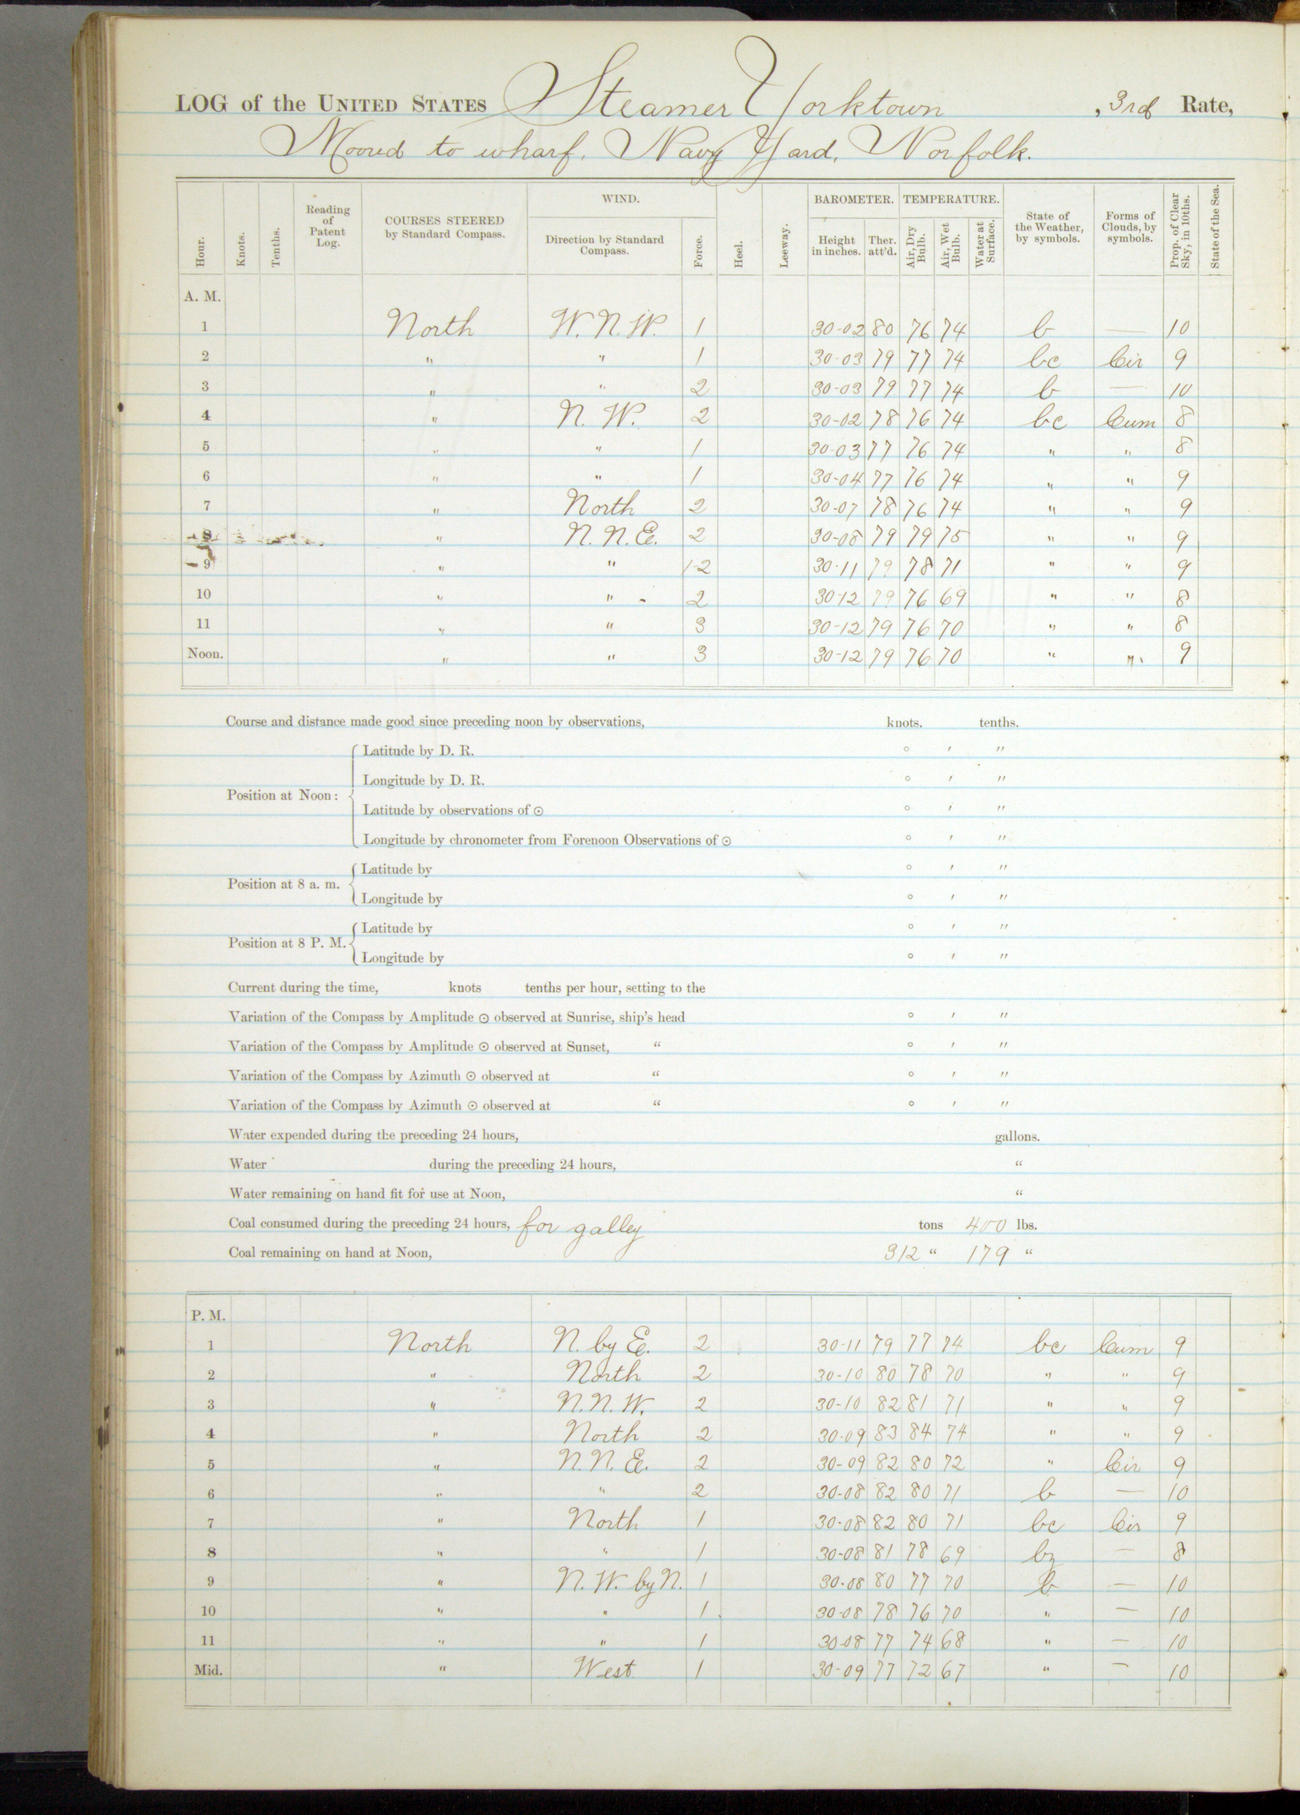 LOG of the UNITED STATES Steamer Yorktown, 3rd Rate,
Moored to wharf, Navy Yard, Norfolk.
Hour. Knots. Tenths. Reading of Patent Log. COURSES STEERED by Standard Compass. WIND. Direction by Standard Compass. Force. Heel. Leeway. BAROMETER. Height in inches. Ther. att'd. TEMPERATURE. Air, Dry Bulb. Air, Wet Bulb. Water at Surface. State of the Weather, by symbols. Forms of Clouds, by symbols. Prop. of Clear Sky, in 10ths. State of the Sea.
A. M.
1 North W.N.W. 1 30-02 80 76 74 b — 10
2 " " 1 30-03 79 77 74 bc Cir 9
3 " " 2 30-03 79 77 74 b — 10
4 " N.W. 2 30-02 78 76 74 bc Cum 8
5 " " 1 30-03 77 76 74 " " 8
6 " " 1 30-04 77 76 74 " " 9
7 " North 2 30-07 78 76 74 " " 9
8 " N.N.E. 2 30-08 79 79 75 " " 9
9 " " 1-2 30-11 79 78 71 " " 9
10 " " - 2 30-12 79 76 69 " " 8
11 " " 3 30-12 79 76 70 " " 8
Noon. " " 3 30-12 79 76 70 " " 9
Course and distance made good since preceding noon by observations, knots. tenths.
Latitude by D. R. ° ′ ″
Longitude by D. R. ° ′ ″
Position at Noon:
Latitude by observations of ☉ ° ′ ″
Longitude by chronometer from Forenoon Observations of ☉ ° ′ ″
Latitude by ° ′ ″
Position at 8 a. m.
Longitude by ° ′ ″
Latitude by ° ′ ″
Position at 8 P. M.
Longitude by ° ′ ″
Current during the time, knots tenths per hour, setting to the
Variation of the Compass by Amplitude ☉ observed at Sunrise, ship's head ° ′ ″
Variation of the Compass by Amplitude ☉ observed at Sunset, " ° ′ ″
Variation of the Compass by Azimuth ☉ observed at " ° ′ ″
Variation of the Compass by Azimuth ☉ observed at " ° ′ ″
Water expended during the preceding 24 hours, gallons.
Water during the preceding 24 hours, "
Water remaining on hand fit for use at Noon, "
Coal consumed during the preceding 24 hours, for galley tons 400 lbs.
Coal remaining on hand at Noon, 312 " 179 "
P. M.
1 North N. by E. 2 30-11 79 77 74 bc Cum 9
2 " North 2 30-10 80 78 70 " " 9
3 " N.N.W. 2 30-10 82 81 71 " " 9
4 " North 2 30-09 83 84 74 " " 9
5 " N.N.E. 2 30-09 82 80 72 " Cir 9
6 " " 2 30-08 82 80 71 b — 10
7 " North 1 30-08 82 80 71 bc Cir 9
8 " " 1 30-08 81 78 69 bz — 8
9 " N.W. by N. 1 30-08 80 77 70 b — 10
10 " " 1 30-08 78 76 70 " — 10
11 " " 1 30-08 77 74 68 " — 10
Mid. " West 1 30-09 77 72 67 " — 10